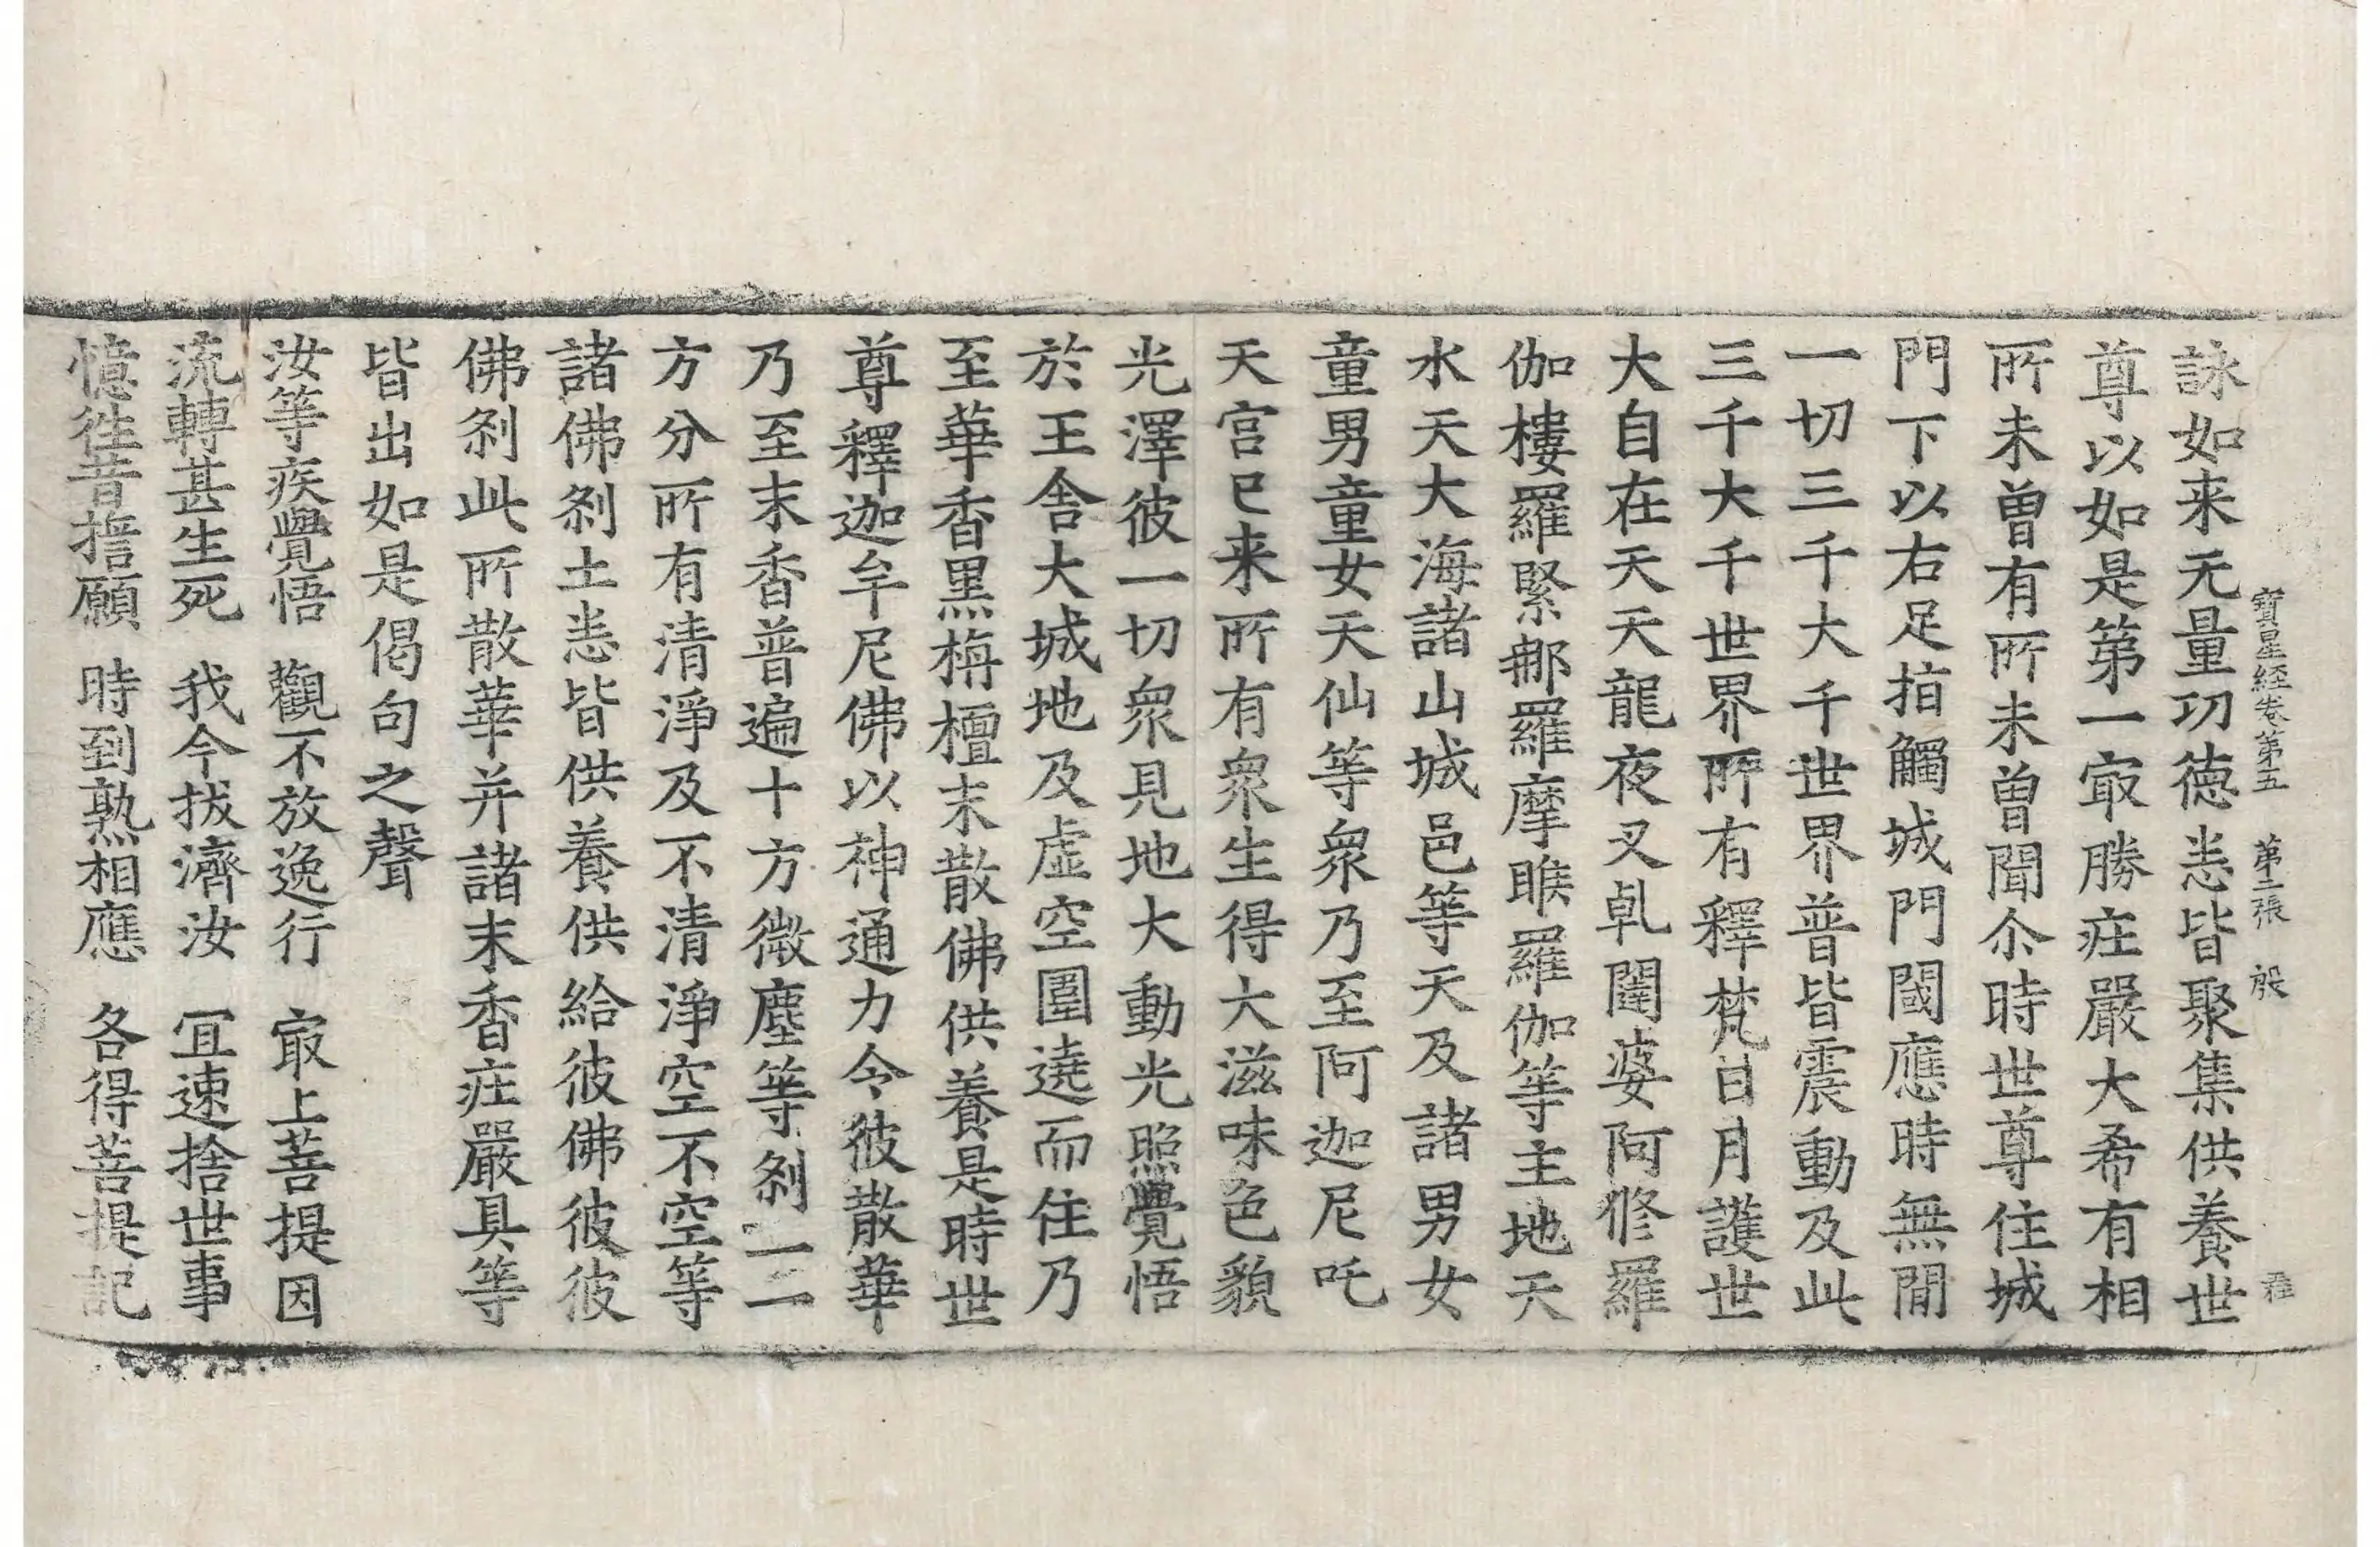 寶星経卷第五 第二張 殷
詠如来无量功德恚皆聚集供養世
尊以如是第一㝡勝庄嚴大希有相
所未曽有所未曽聞尒時世尊住城
門下以右足指觸城門閫應時無閒
一切三千大千世界普皆震動及此
三千大千世界所有釋梵日月護世
大自在天天龍夜叉乹闥婆阿修羅
伽樓羅緊那羅摩睺羅伽等主地天
水天大海諸山城邑等天及諸男女
童男童女天仙等衆乃至阿迦尼吒
天宫已来所有衆生得大滋味色貌
光澤彼一切衆見地大動光照覺悟
於王舍大城地及虚空圍遶而住乃
至華香黒栴檀末散佛供養是時世
尊釋迦牟尼佛以神通力令彼散華
乃至末香普遍十方微塵等刹一一
方分所有清淨及不清淨空不空等
諸佛刹土恚皆供養供給彼佛彼彼
佛刹此所散華并諸末香庄嚴具等
皆出如是偈句之聲
汝等疾覺悟 觀不放逸行 㝡上菩提因
流轉甚生死 我今拔濟汝 冝速捨世事
憶徃昔擔願 時到熟相應 各得菩提記